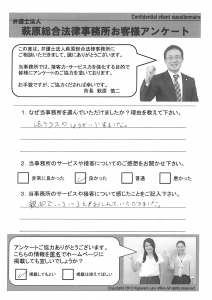 Confidential client questionnaire
弁護士法人
萩原総合法律事務所お客様アンケート
この度は、弁護士法人萩原総合法律事務所に
ご相談いただきまして、誠にありがとうございます。
当事務所では、接客力・サービス力を強化する目的で
皆様にアンケートのご協力を仰いでおります。
お手数ですが、ご協力くだされば幸いです。
所長 萩原 慎二
1. なぜ当事務所を選んでいただけましたか？理由を教えて下さい。
2. 当事務所のサービスや接客についてのご感想をお聞かせ下さい。
非常に良かった 良かった 普通 悪かった
3. 当事務所のサービスや接客について感じたことをご記入下さい。
アンケートご協力ありがとうございます。
こちらの情報を匿名でホームページに
掲載しても宜しいでしょうか？
掲載しても良い 掲載は控えてほしい